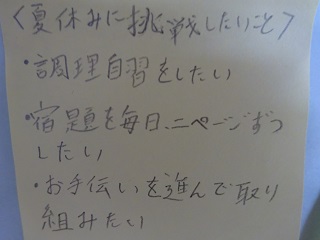 〈夏休みに挑戦したいこと〉
・調理自習をしたい
・宿題を毎日、二ページずつ
したい
・お手伝いを進んで取り
組みたい